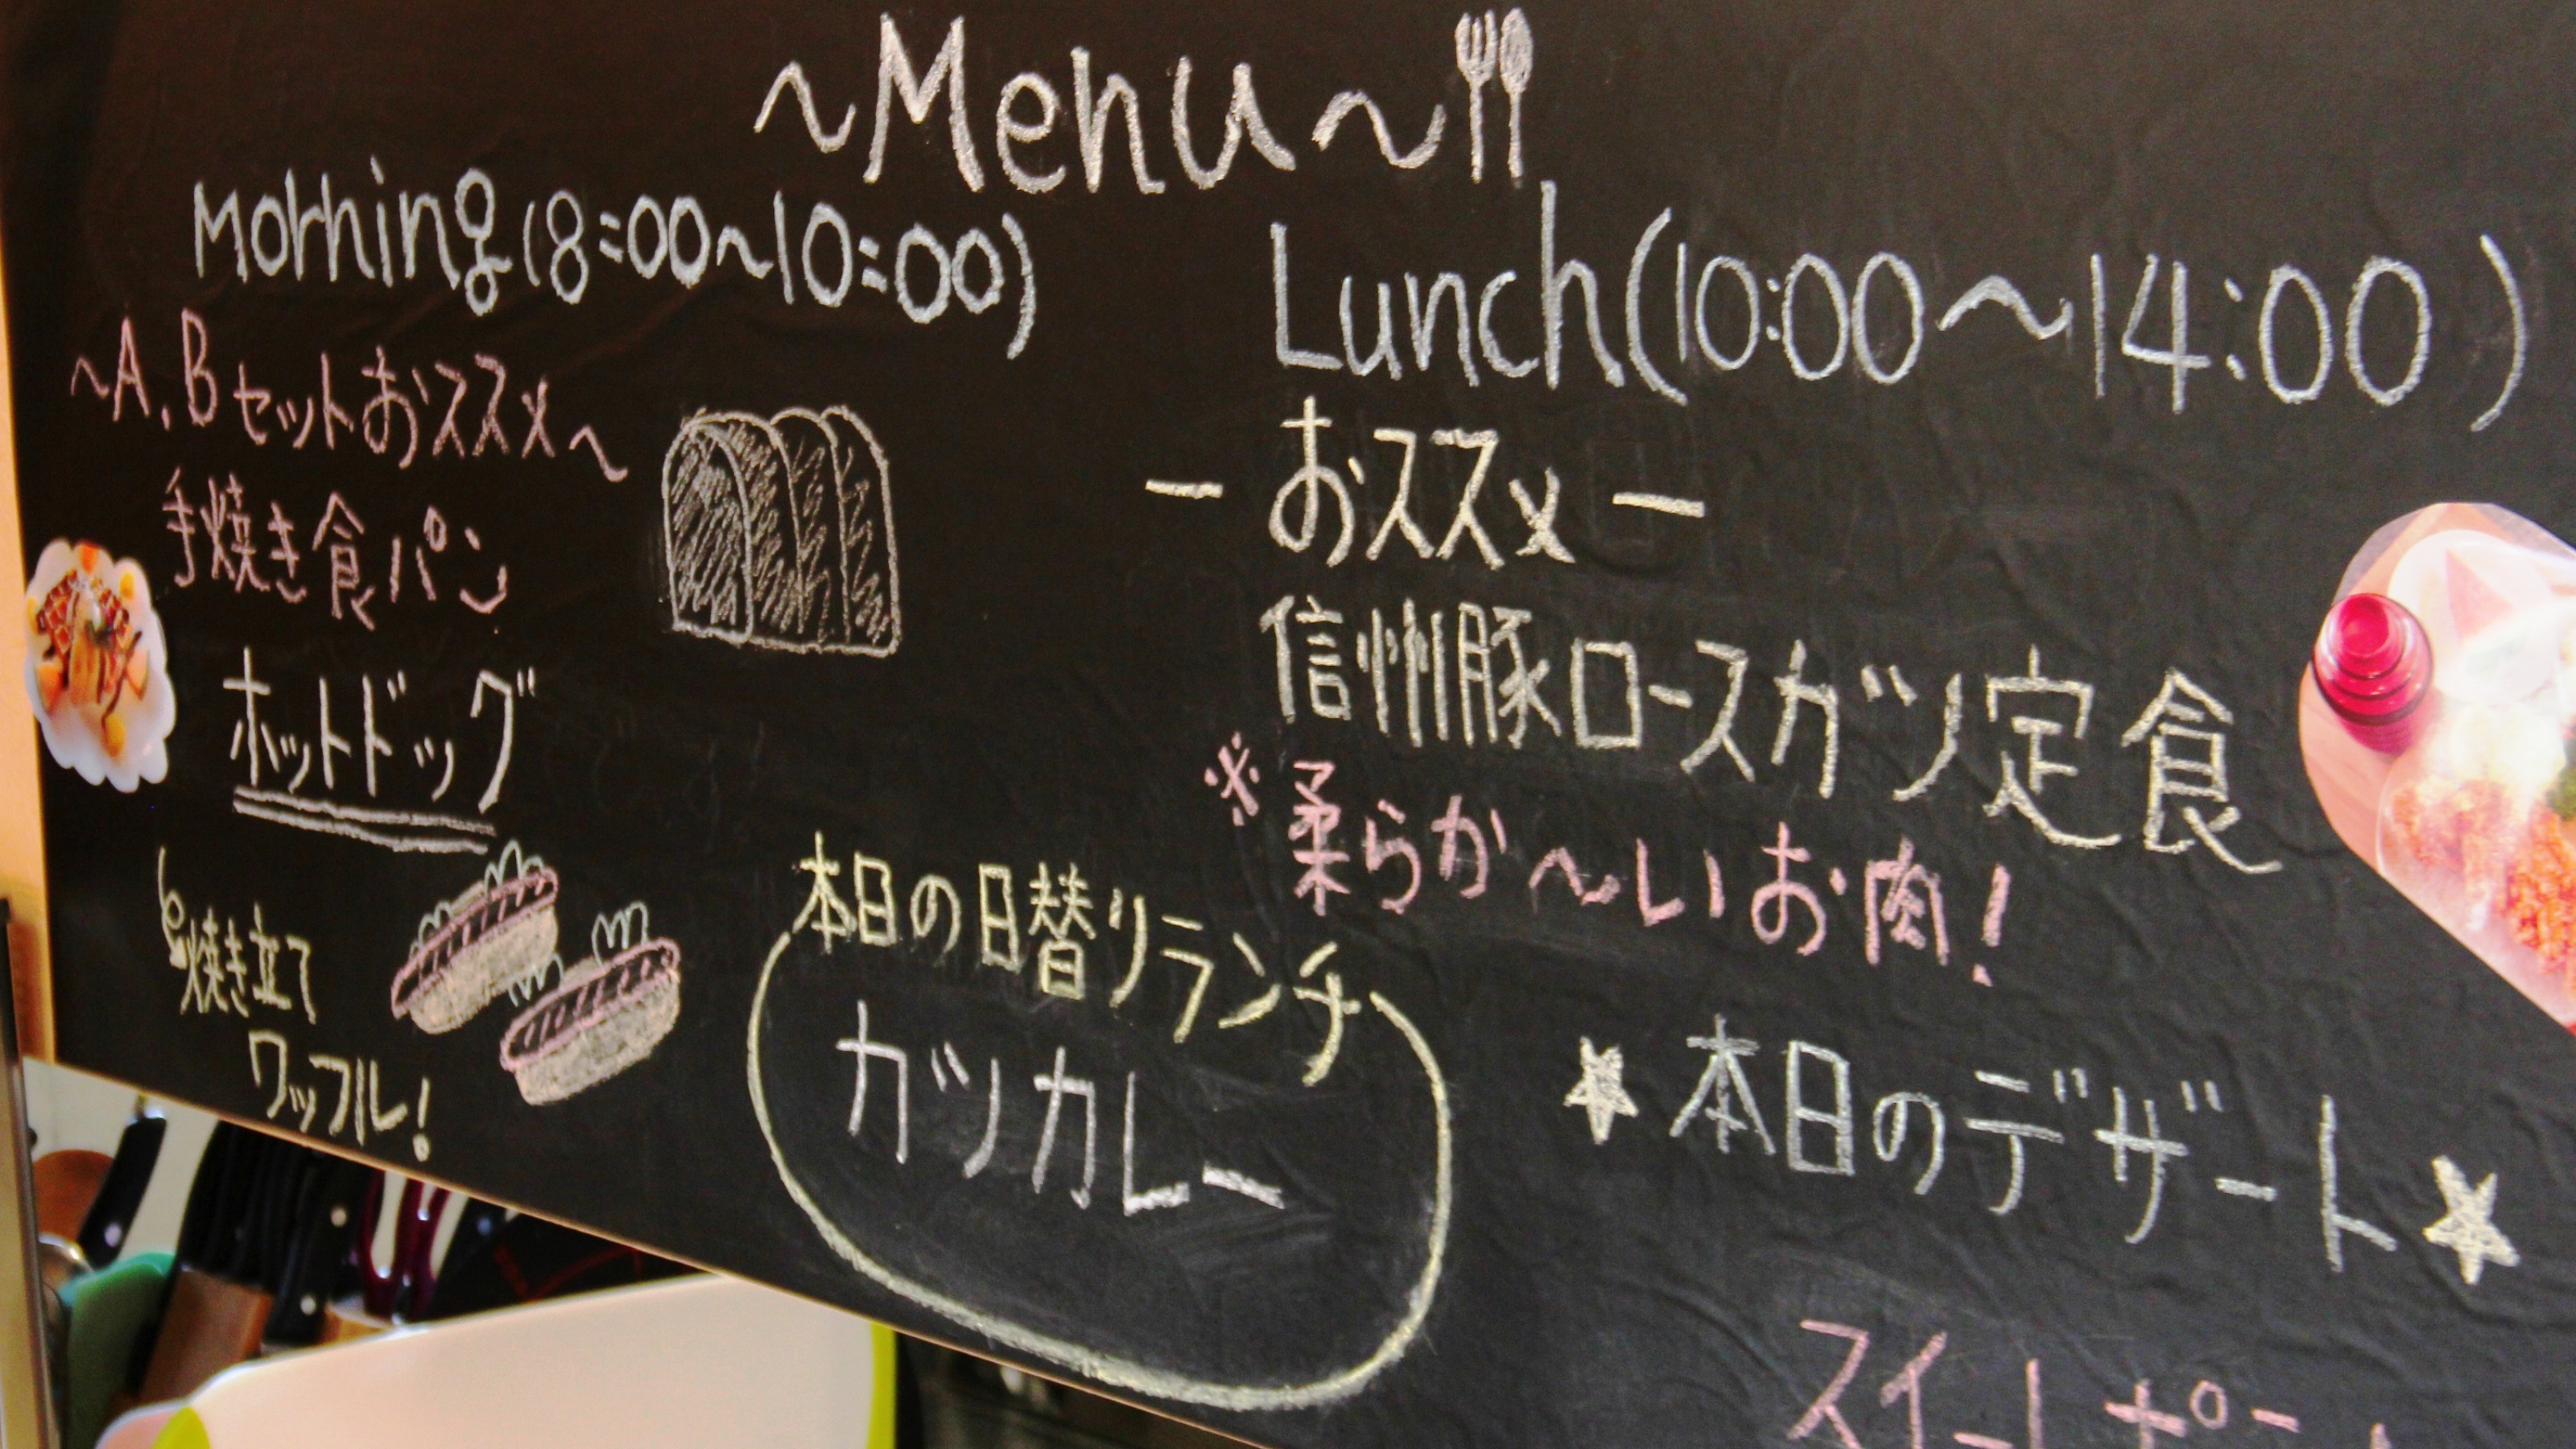 ~Menu~
Morning(8:00~10:00)
~A,Bセットおススメ~
手焼き食パン
ホットドッグ
焼き立て
ワッフル!
Lunch(10:00~14:00)
ーおススメー
信州豚ロースカツ定食
※柔らか~いお肉!
本日の日替りランチ
カツカレー
★本日のデザート★
スイートポ